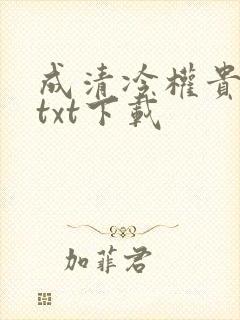 成清冷權貴
txt下載
加菲君